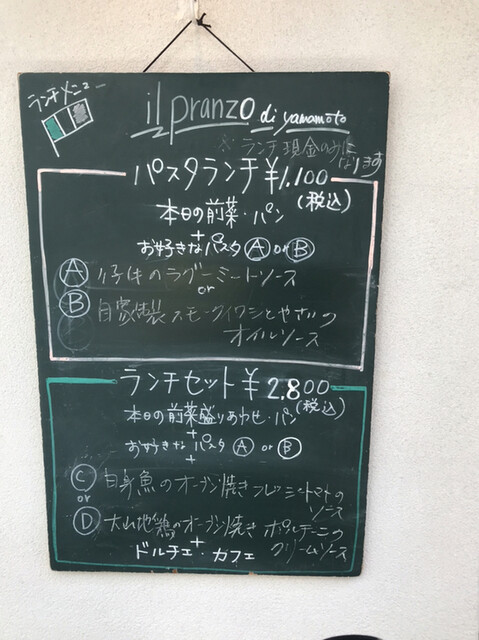 ランチメニュー
il pranzo di yamamoto
※ランチ現金のみになります
パスタランチ ¥1.100
(税込)
本日の前菜・パン
+
お好きなパスタ Ⓐ or Ⓑ
Ⓐ 仔牛のラグーミートソース
or
Ⓑ 自家製スモークイワシとやさいの
オイルソース
ランチセット ¥2.800
(税込)
本日の前菜盛りあわせ・パン
+
お好きなパスタ Ⓐ or Ⓑ
+
Ⓒ 白身魚のオーブン焼き フレッシュトマトの
ソース
or
Ⓓ 大山地鶏のオーブン焼き ポルチーニの
クリームソース
+
ドルチェ・カフェ